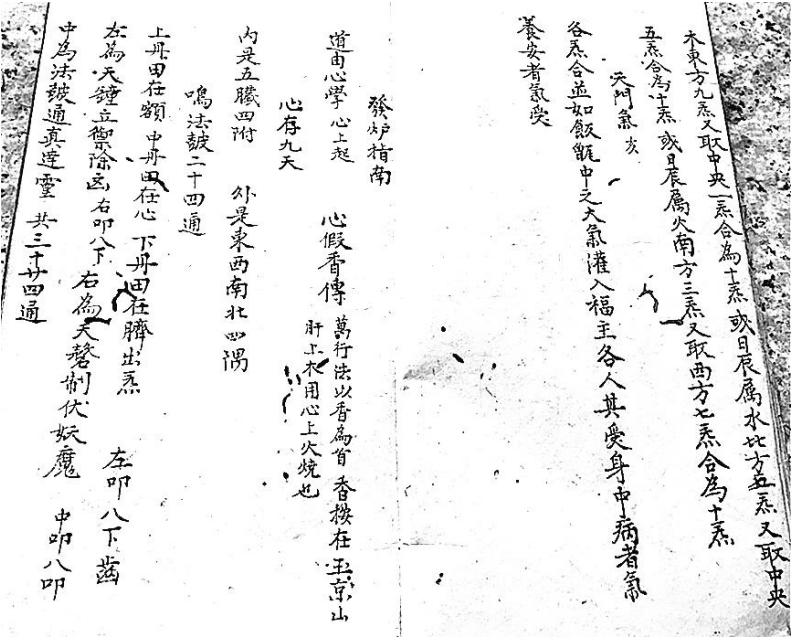 木東方九炁又取中央一炁合為十炁或日辰属水北方五炁又取中央
五炁合為十炁或日辰属火南方三炁又取西方七炁合為十炁
天門氣亥
各炁合並如飯甑中之大氣灌入福主各人其受身中病者氣
養安者氣受
發炉指南
道由心學心上起心假香傳萬行法以香為首香按在玉京山
肝上木用心上火燒也
心存九天
內是五臟四附外是東西南北四隅
鳴法鼓二十四通
上丹田在額中丹田在心下丹田在臍出炁左叩八下齒
左為天鐘立禦除凶右叩八下右為天磬制伏妖魔中叩八叩
中為法鼓通真達靈共三十廿四通